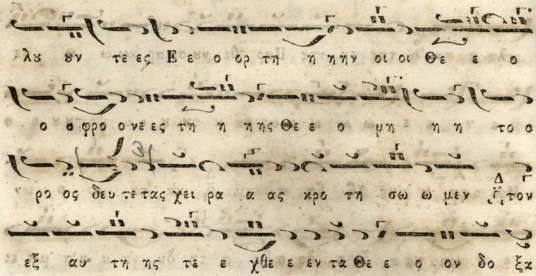 λυ ουν τε ες Ε ε ο ορ τη η ηην οι οι Θε ε ο
ο ο φρο ο νε ες τη η ηης Θε ε ο μη η η το ο
ρο ος δευ τε τας χει ρα α ας κρο τη σω ω μεν τον
εξ αυ τη ης τε ε χθε ε εν τα Θε ε ο ον δο ξα